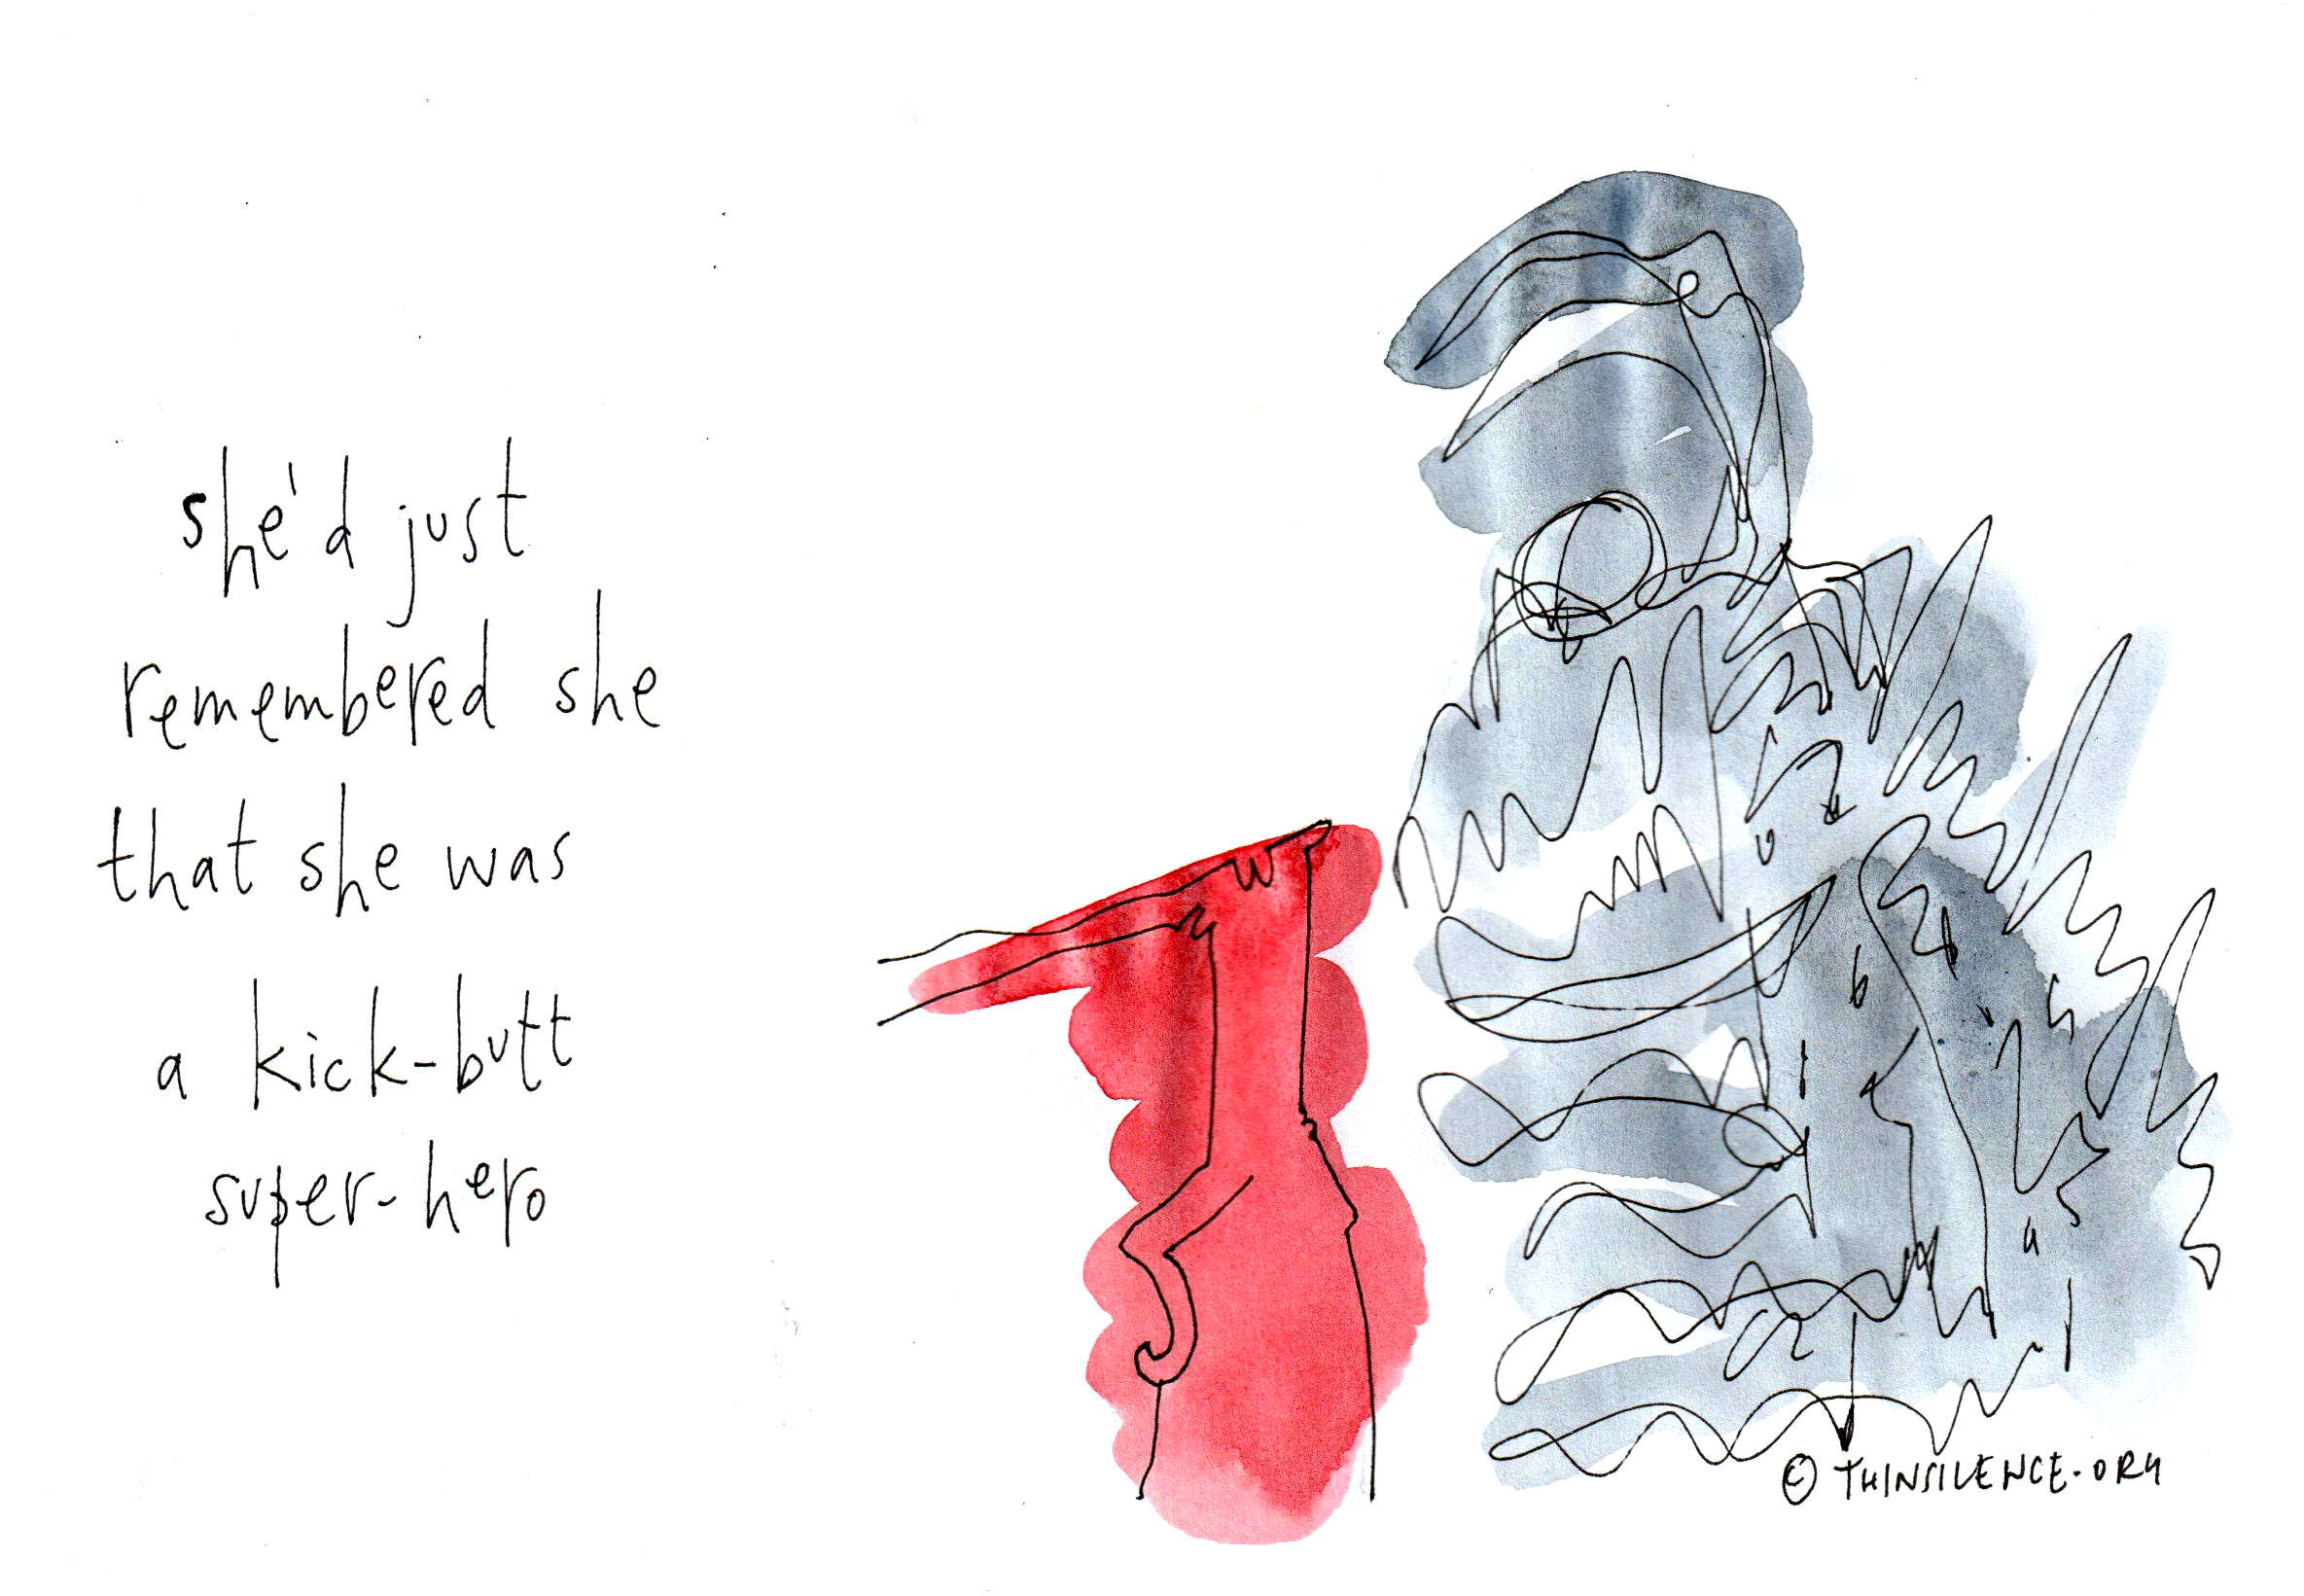 she'd just
remembered she
that she was
a kick-butt
super-hero
© THINSILENCE.ORG